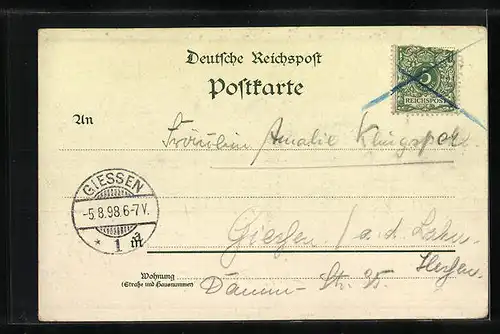 Deutsche Reichspost
Postkarte
5
REICHSPOST
An
Fräulein Amalie Klingspor.
GIESSEN
-5.8.98.6-7V.
* 1
Giessen / a.d. Lahn.
Hessen.
Wohnung
(Straße und Hausnummer)
Damm-Str. 35.